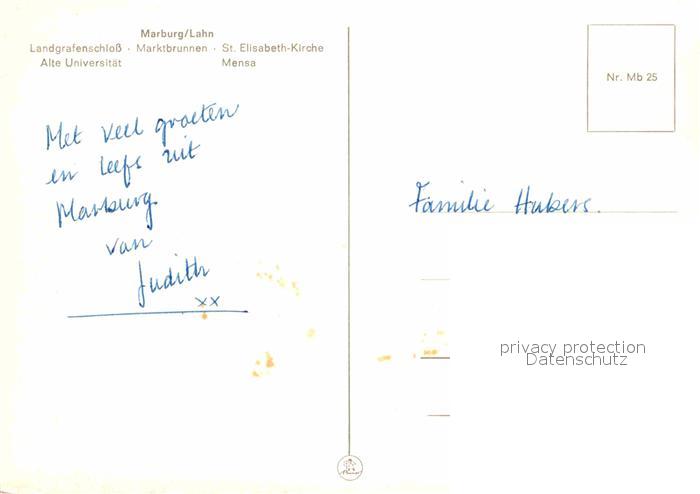 Marburg/Lahn
Landgrafenschloß · Marktbrunnen · St. Elisabeth-Kirche
Alte Universität Mensa
Nr. Mb 25
Met veel groeten
en liefs uit
Marburg
van
Judith
xx
Familie Hubers.
privacy protection
Datenschutz